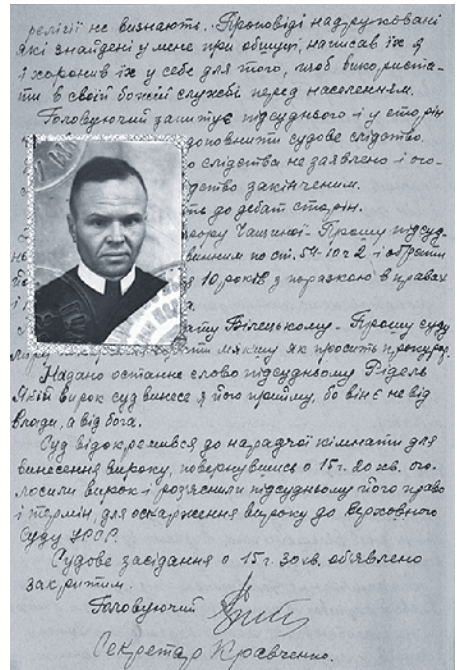 релігії не визнають. Проповіді надруковані
які знайдені у мене при обшуці, написав їх я
і хоронив їх у себе для того, щоб використа-
ти в своїй божій службі перед населенням.
Головуючий запитує підсуднього і у сторін
доповнити судове слідство.
слідства не заявлено і ого-
дство закінченим.
ть до дебат сторін.
рору Чащиної - Прошу підсуд-
винним по ст. 54-10 ч 2 і обрати
10 років з поразкою в правах
ату Білецькому - Прошу суду
міру мякшу як просить прокурор.
Надано останнє слово підсудньому Рідель
Який вирок суд винесе я його прийму, бо він є не від
влади, а від бога.
Суд відокремився до нарадчої кімнати для
винесення вироку, повернувшись о 15 г. 20 хв. ого-
лосили вирок і роз'яснили підсудньому його право
і термін, для оскарження вироку до Верховного
Суду УРСР.
Судове засідання о 15 г. 30 хв. об'явлено
закритим.
Головуючий
Секретар Кравченко.